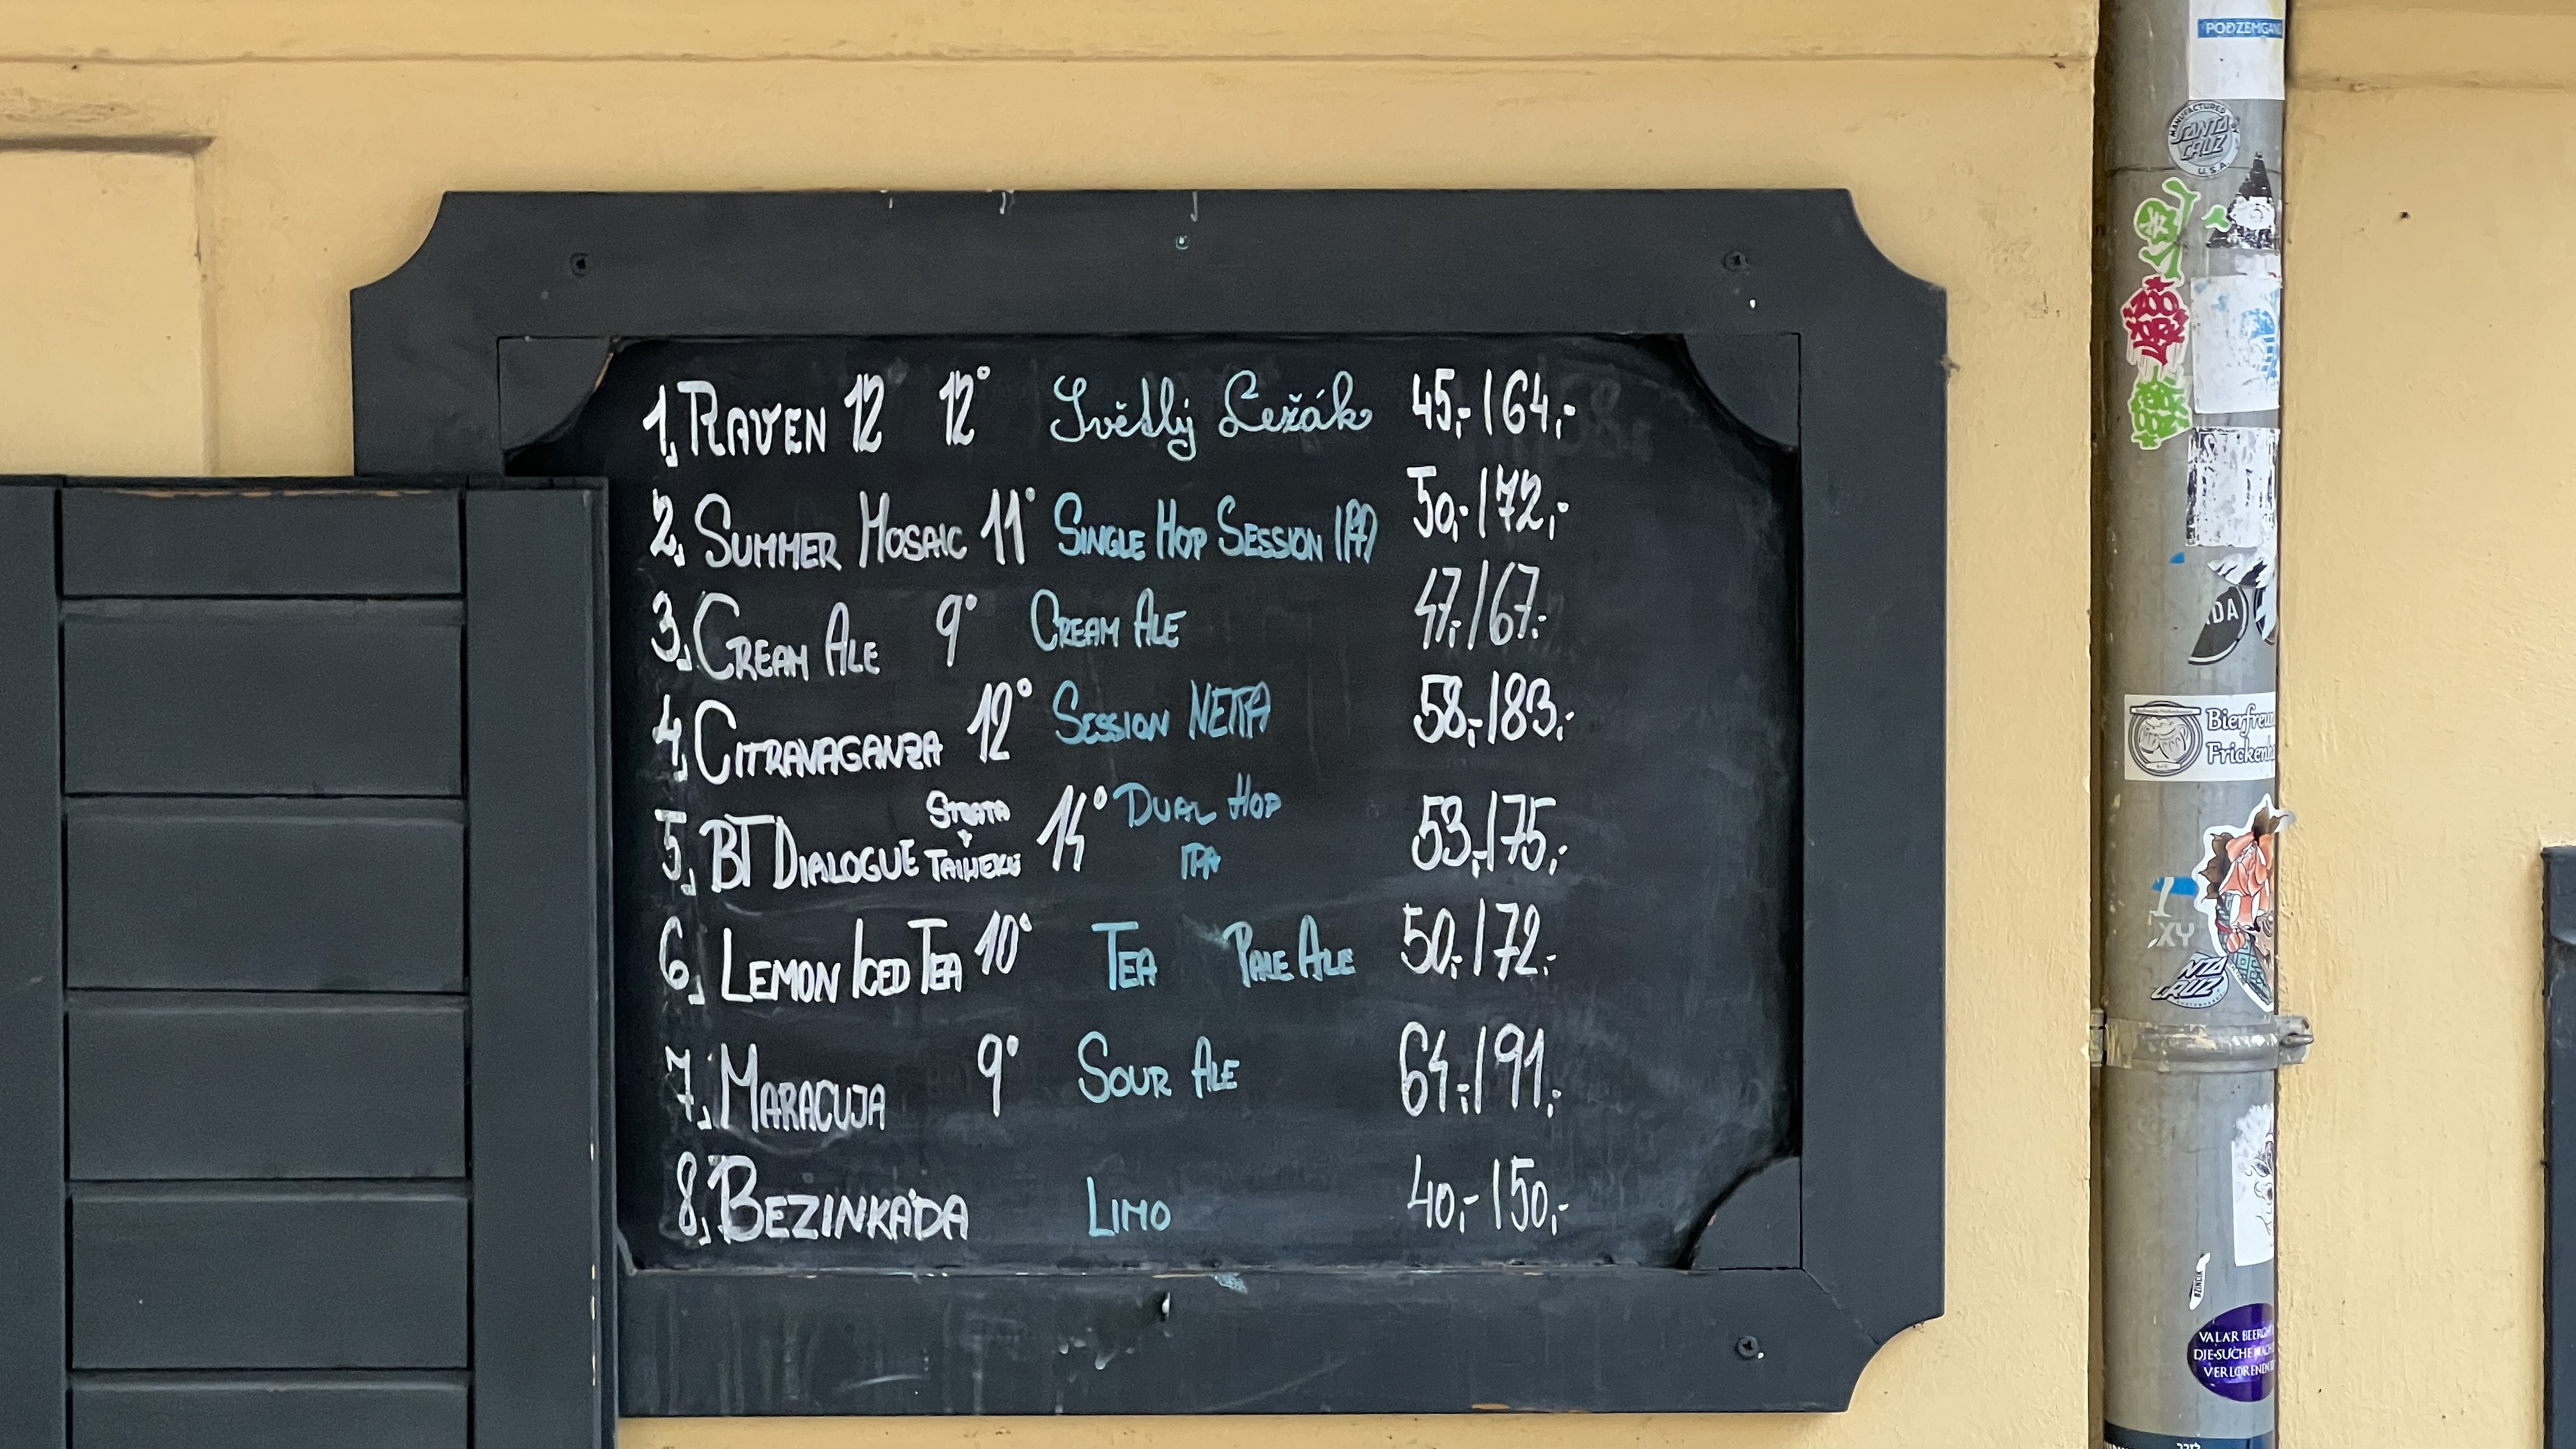 1. RAVEN 12 12° Světlý Ležák 45,-/64,-
2. SUMMER MOSAIC 11° SINGLE HOP SESSION IPA 50,-/72,-
3. CREAM ALE 9° CREAM ALE 47,-/67,-
4. CITRAVAGANZA 12° SESSION NEIPA 58,-/83,-
5. BT DIALOGUE STRATA + TAIHEKE 14° DUAL HOP IPA 53,-/75,-
6. LEMON ICED TEA 10° TEA PALE ALE 50,-/72,-
7. MARACUJA 9° SOUR ALE 64,-/91,-
8. BEZINKÁDA LIMO 40,-/50,-
PODZEMGANG
MANUFACTURED BY
SANTA
CRUZ
U.S.A.
ZOO
YORK
DA
Bierfreu
Frickenh
XY
NTA
CRUZ
VALAR BEERGH
DIE SUCHE NACH
VERLORENEN